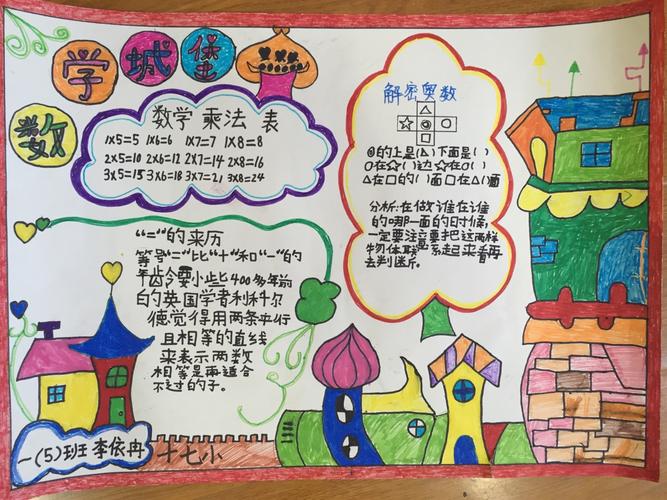 数学城堡
数学 乘法 表
1×5=5 1×6=6 1×7=7 1×8=8
2×5=10 2×6=12 2×7=14 2×8=16
3×5=15 3×6=18 3×7=21 3×8=24
解密奥数
△
☆ ◎ ○
□
◎的上是(△)下面是( )
○在☆( )边☆在○( )
△在□的( )面□在△( )面
分析:在做谁在谁
的哪一面的时候,
一定要注意要把这两样
物体联系起来看再
去判迷乐。
“=”的来历
等号“=”比“+”和“-”的
年龄要小些400多年前
的英国学者利科尔
德觉得用两条平行
且相等的直线
来表示两数
相等是再适合
不过的了。
一(5)班 李依冉
十七小